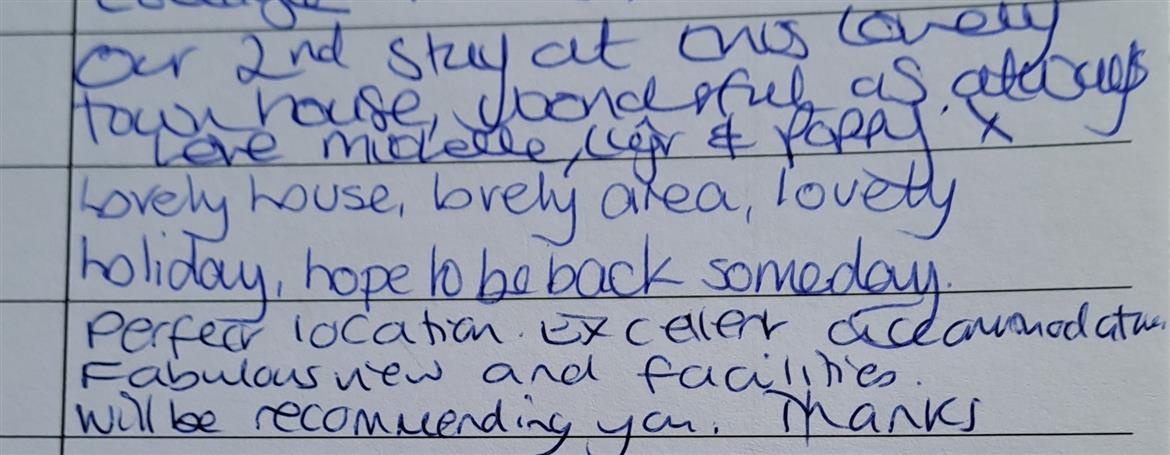 Our 2nd stay at this lovely
town house, wonderful as always
Love Michelle, & Poppy x
Lovely house, lovely area, lovely
holiday, hope to be back someday.
Perfect location. Excellent accommodation.
Fabulous view and facilities.
Will be recommending you. Thanks